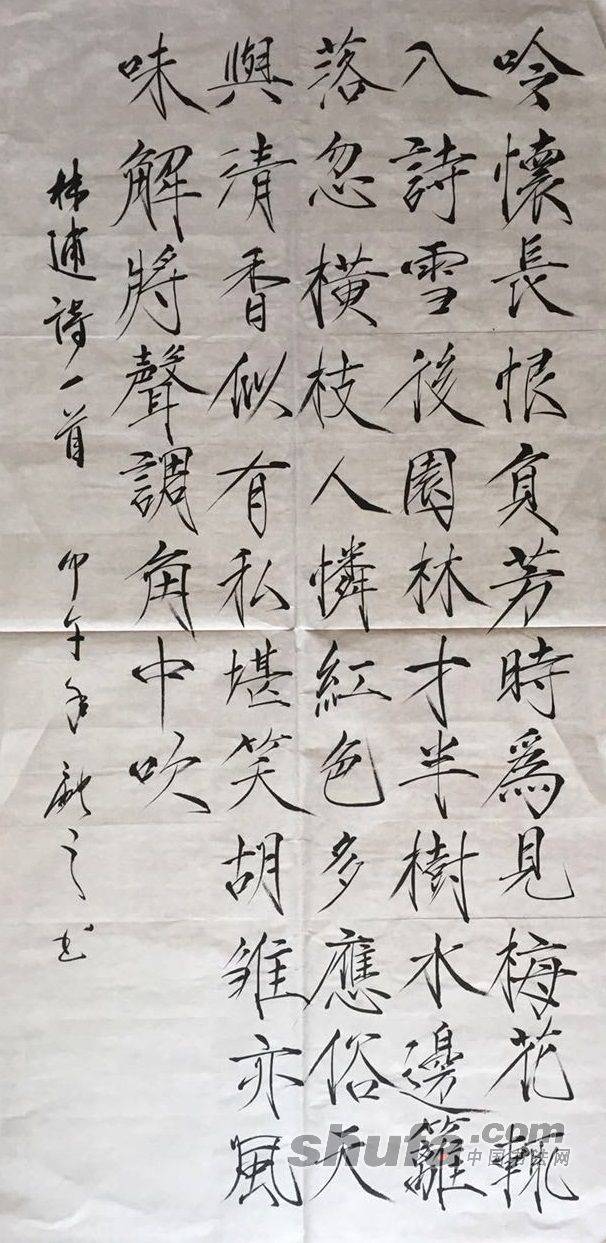 吟懷長恨負芳時爲見梅花輒
入詩雪後園林才半樹水邊籬
落忽橫枝人憐紅色多應俗天
與清香似有私堪笑胡雛亦風
味解將聲調角中吹
林逋詩一首 甲午年之书
shufa.com
中国书法网